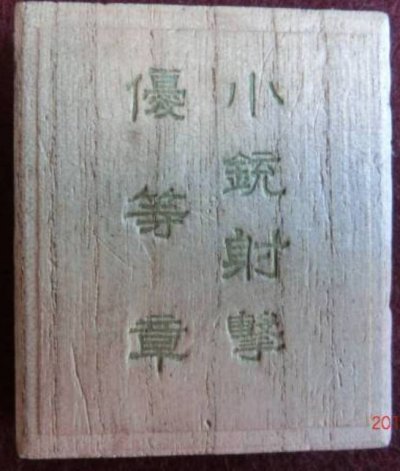 小銃射撃
優等章
20